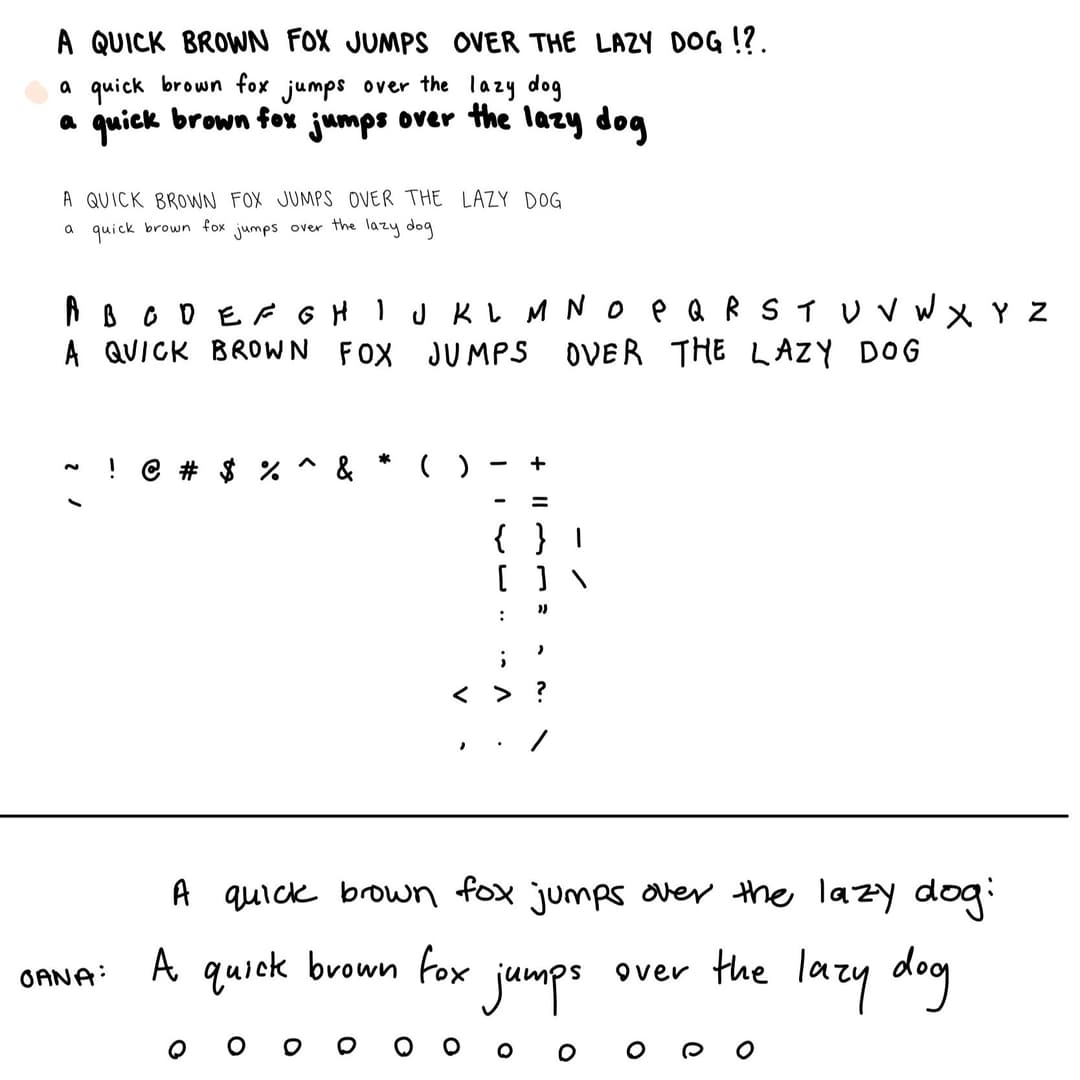 A QUICK BROWN FOX JUMPS OVER THE LAZY DOG !?.
a quick brown fox jumps over the lazy dog
a quick brown fox jumps over the lazy dog
A QUICK BROWN FOX JUMPS OVER THE LAZY DOG
a quick brown fox jumps over the lazy dog
A B C D E F G H I J K L M N O P Q R S T U V W X Y Z
A QUICK BROWN FOX JUMPS OVER THE LAZY DOG
~ ! @ # $ % ^ & * ( ) – +
` - =
{ } |
[ ] \
: "
; ,
< > ?
, . /
A quick brown fox jumps over the lazy dog:
OANA: A quick brown fox jumps over the lazy dog
o o o o o o o o o o o